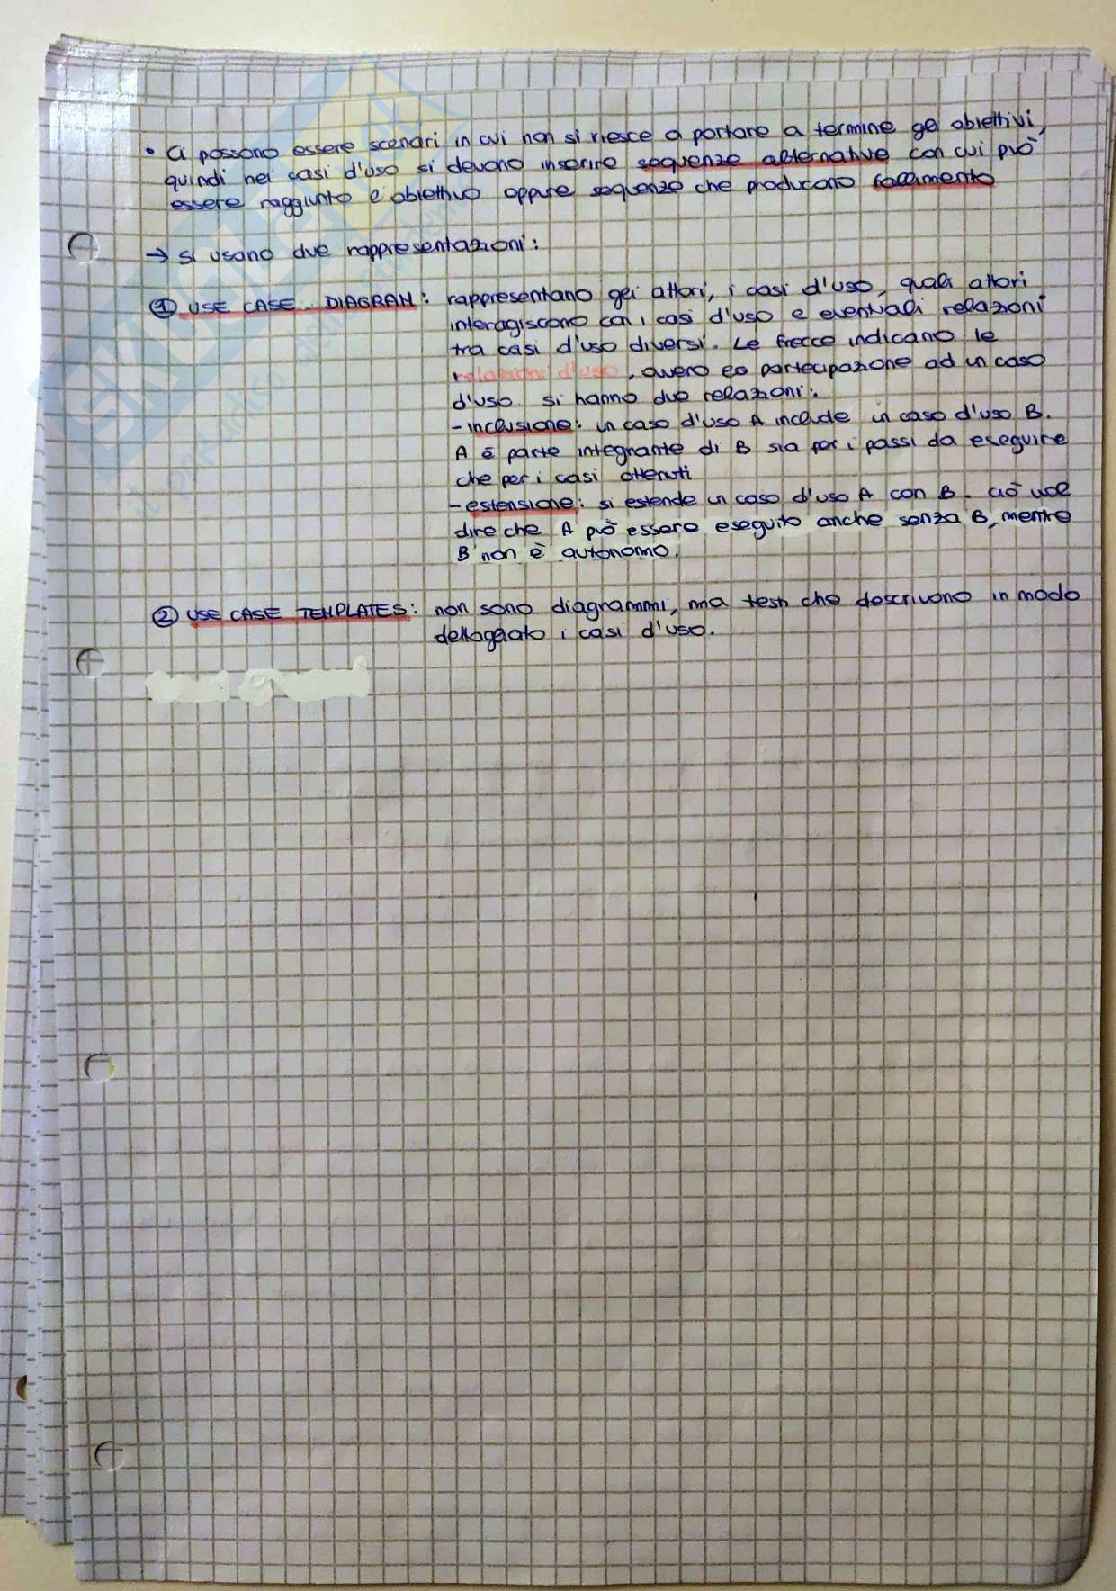 • Ci possono essere scenari in cui non si riesce a portare a termine gli obiettivi,
quindi nei casi d'uso si devono inserire sequenze alternative con cui può
essere raggiunto l'obiettivo oppure sequenze che producano fallimento
→ si usano due rappresentazioni:
① USE CASE DIAGRAM: rappresentano gli attori, i casi d'uso, quali attori
interagiscono con i casi d'uso e eventuali relazioni
tra casi d'uso diversi. Le frecce indicano le
relazioni d'uso, ovvero la partecipazione ad un caso
d'uso. si hanno due relazioni:
- inclusione: un caso d'uso A include un caso d'uso B.
A è parte integrante di B sia per i passi da eseguire
che per i casi ottenuti
- estensione: si estende un caso d'uso A con B. ciò vuol
dire che A può essere eseguito anche senza B, mentre
B non è autonomo.
② USE CASE TEMPLATES: non sono diagrammi, ma testi che descrivono in modo
dettagliato i casi d'uso.